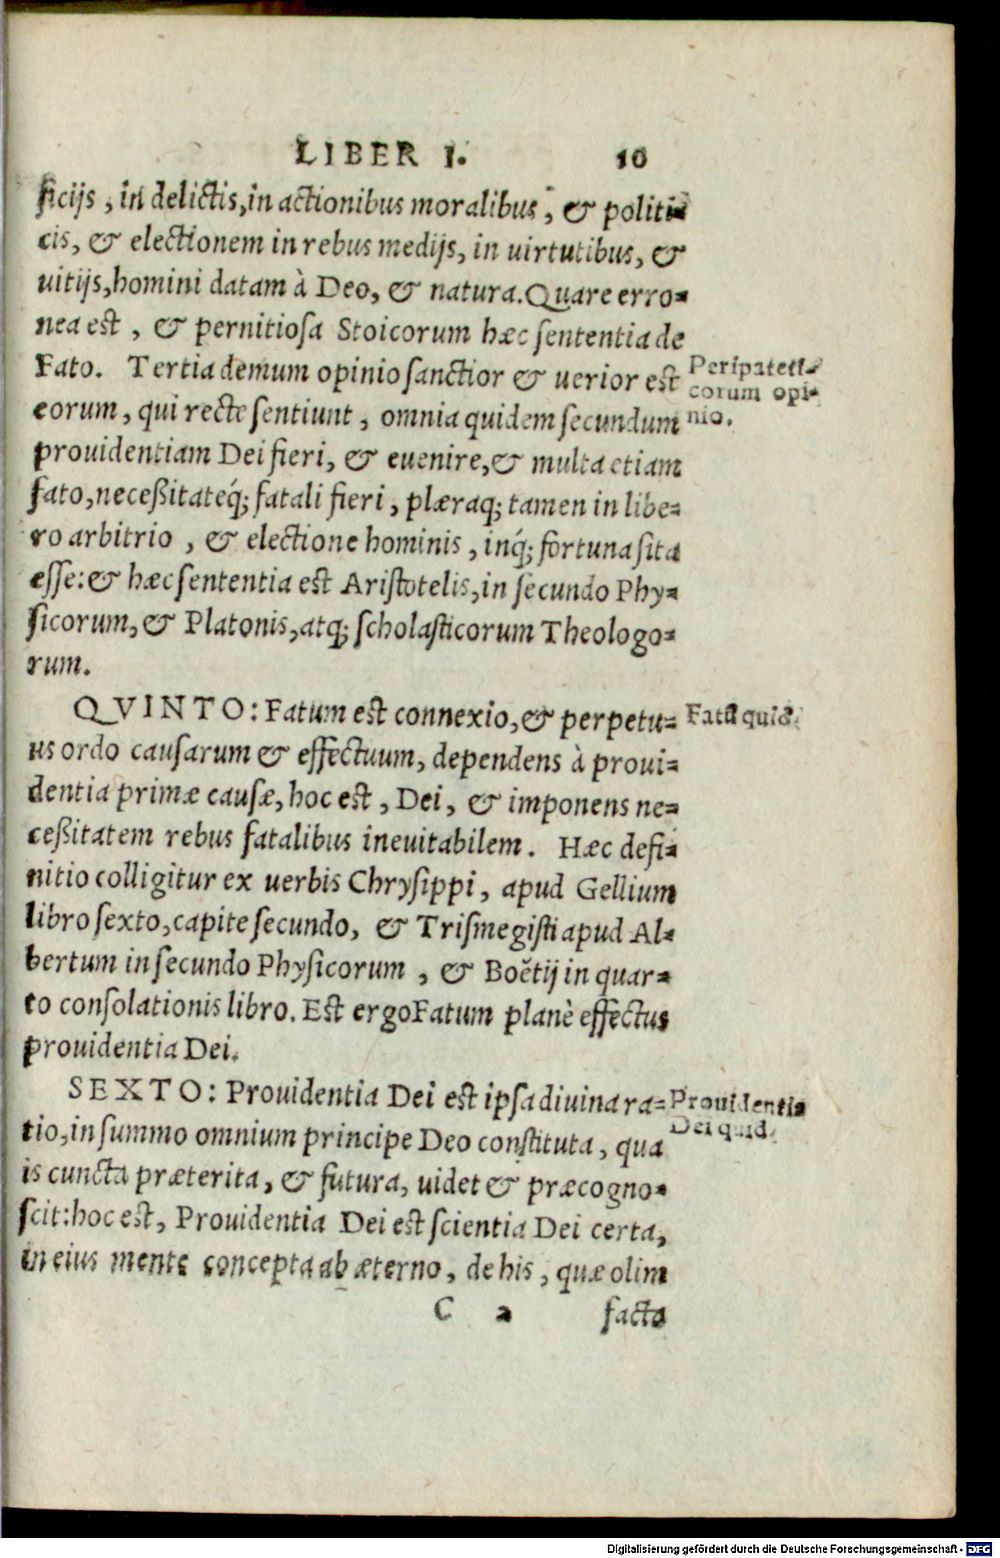 LIBER I. 10
ficijs, in delictis, in actionibus moralibus, & politi-
cis, & electionem in rebus medijs, in uirtutibus, &
uitijs, homini datam à Deo, & natura. Quare erro-
nea est, & pernitiosa Stoicorum hæc sententia de
Fato. Tertia demum opinio sanctior & uerior est
Peripateti-
corum opi-
nio.
eorum, qui recte sentiunt, omnia quidem secundum
prouidentiam Dei fieri, & euenire, & multa etiam
fato, neceßitateq́; fatali fieri, plæraq; tamen in libe-
ro arbitrio, & electione hominis, inq́; fortuna sita
esse: & hæc sententia est Aristotelis, in secundo Phy-
sicorum, & Platonis, atq; scholasticorum Theologo-
rum.
QVINTO: Fatum est connexio, & perpetu-
Fatū quid.
us ordo causarum & effectuum, dependens à proui-
dentia primæ causæ, hoc est, Dei, & imponens ne-
ceßitatem rebus fatalibus ineuitabilem. Hæc defi-
nitio colligitur ex uerbis Chrysippi, apud Gellium
libro sexto, capite secundo, & Trismegisti apud Al-
bertum in secundo Physicorum, & Boëtij in quar-
to consolationis libro. Est ergo Fatum planè effectus
prouidentia Dei.
SEXTO: Prouidentia Dei est ipsa diuina ra-
Prouidentia
Dei quid.
tio, in summo omnium principe Deo constituta, qua
is cuncta præterita, & futura, uidet & præcogno-
scit: hoc est, Prouidentia Dei est scientia Dei certa,
in eius mente concepta ab æterno, de his, quæ olim
C 2 facta
Digitalisierung gefördert durch die Deutsche Forschungsgemeinschaft - DFG